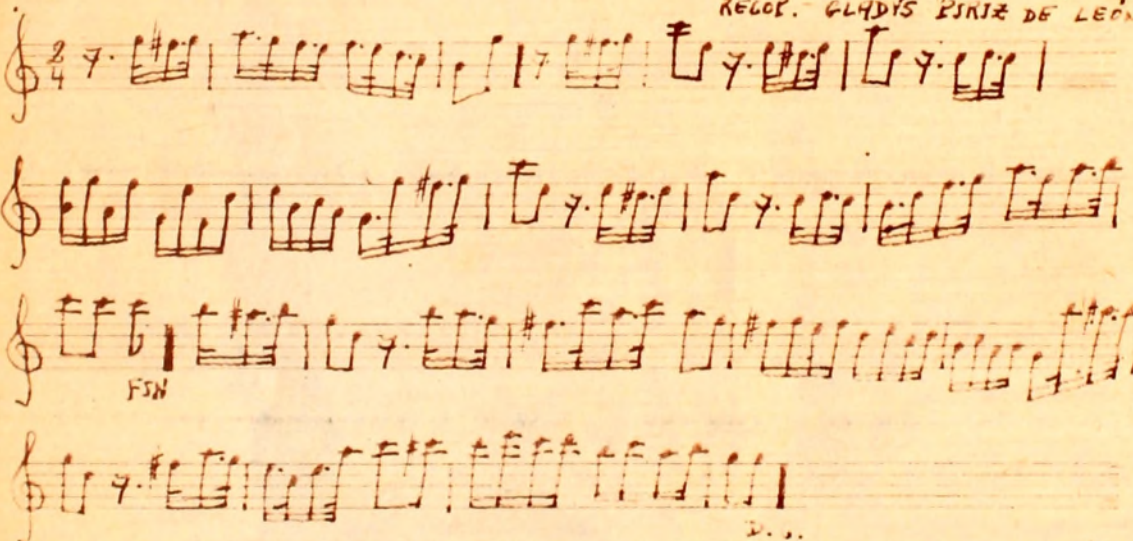 RECOP. GLADYS PIRIZ DE LEÓN
2
4
FIN
D.C.